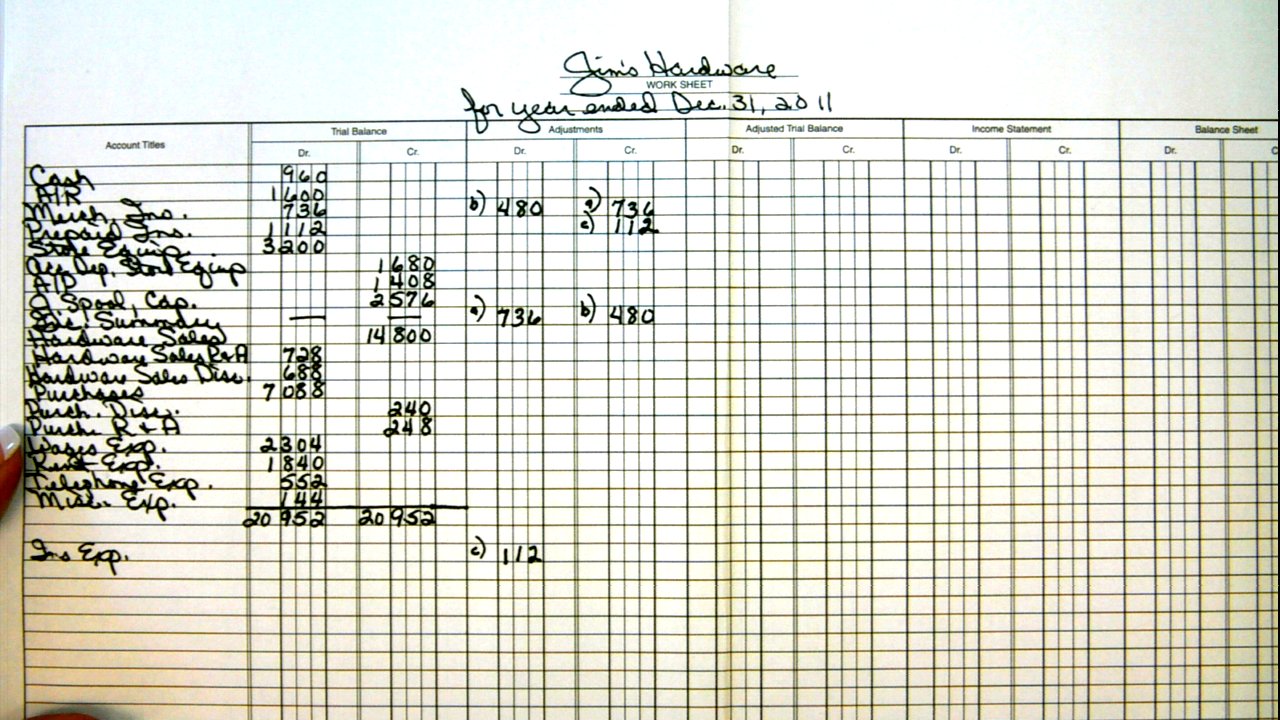 Jim's Hardware
WORK SHEET
for year ended Dec. 31, 2011
Account Titles Trial Balance Adjustments Adjusted Trial Balance Income Statement Balance Sheet
Dr. Cr. Dr. Cr. Dr. Cr. Dr. Cr. Dr. C
Cash 960
A/R 1 600
Merch. Inv. 736 b) 480 a) 736
Prepaid Ins. 1 112 c) 112
Store Equip. 3200
Acc Dep, Store Equip 1 680
A/P 1 408
J. Spool, Cap. 2 576
Inc. Summary — — a) 736 b) 480
Hardware Sales 14 800
Hardware Sales R+A 728
Hardware Sales Disc. 688
Purchases 7 088
Purch. Disc. 240
Purch. R + A 248
Wages Exp. 2304
Rent Exp. 1840
Telephone Exp. 552
Misc. Exp. 144
20 952 20 952
Ins Exp. c) 112